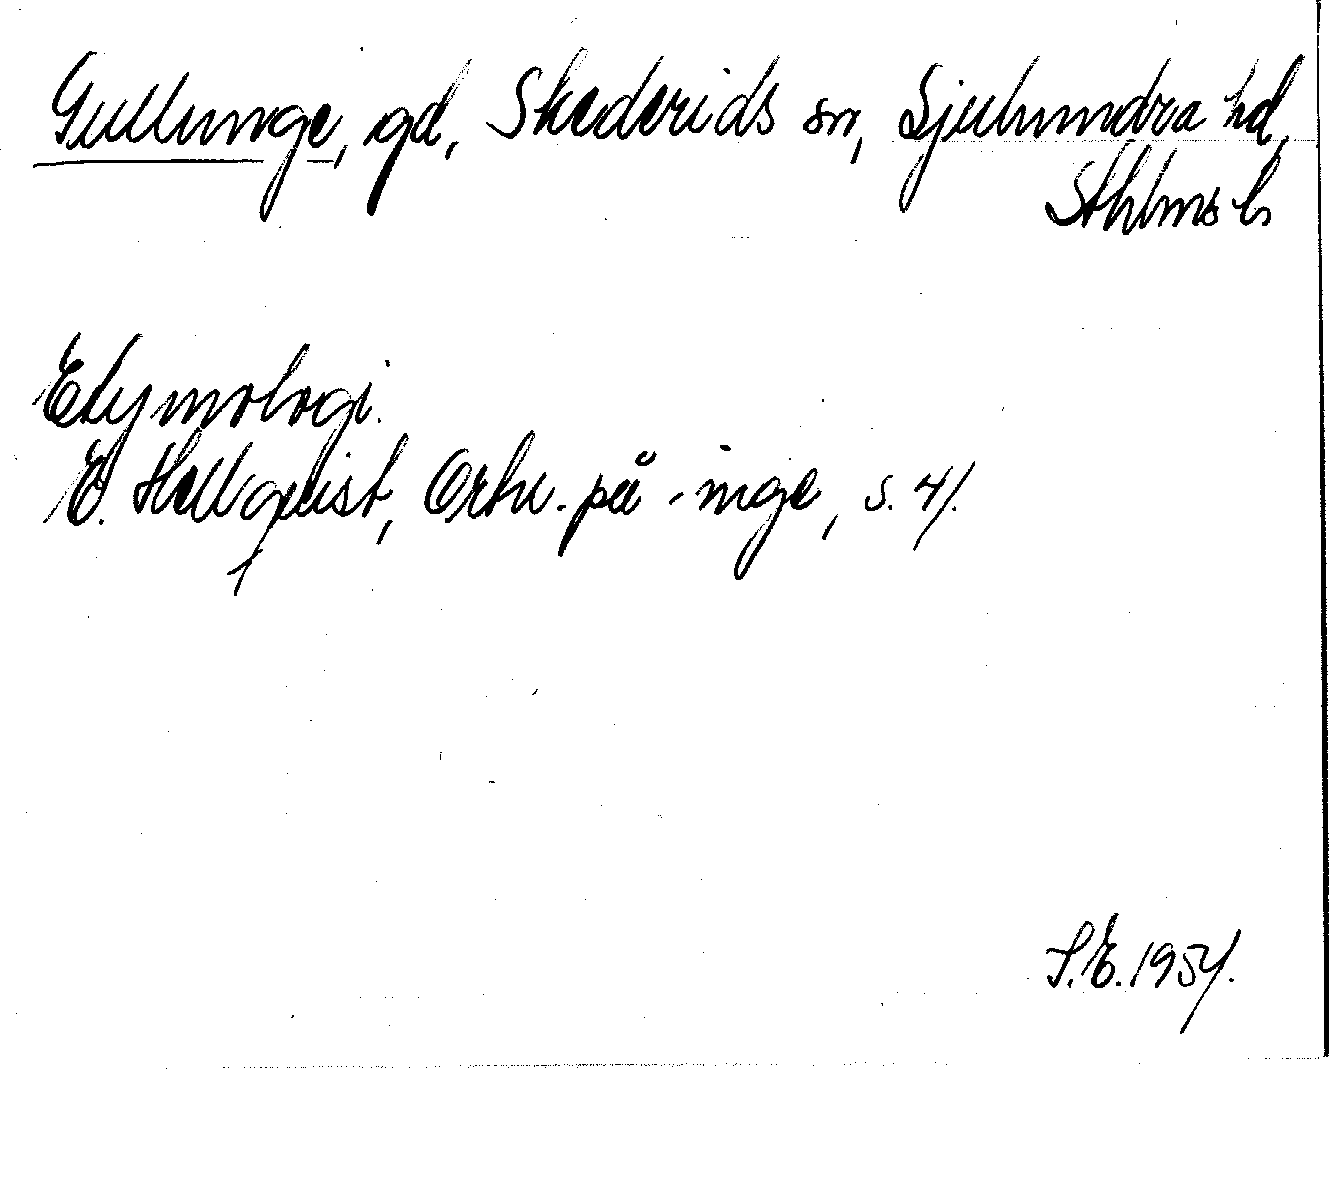 Gullunge, gd, Skederids sn, Sjuhundra hd,
Sthlms ln
Etymologi.
E. Hellquist, Ortn. på -inge, s. 41.
S.E. 1954.